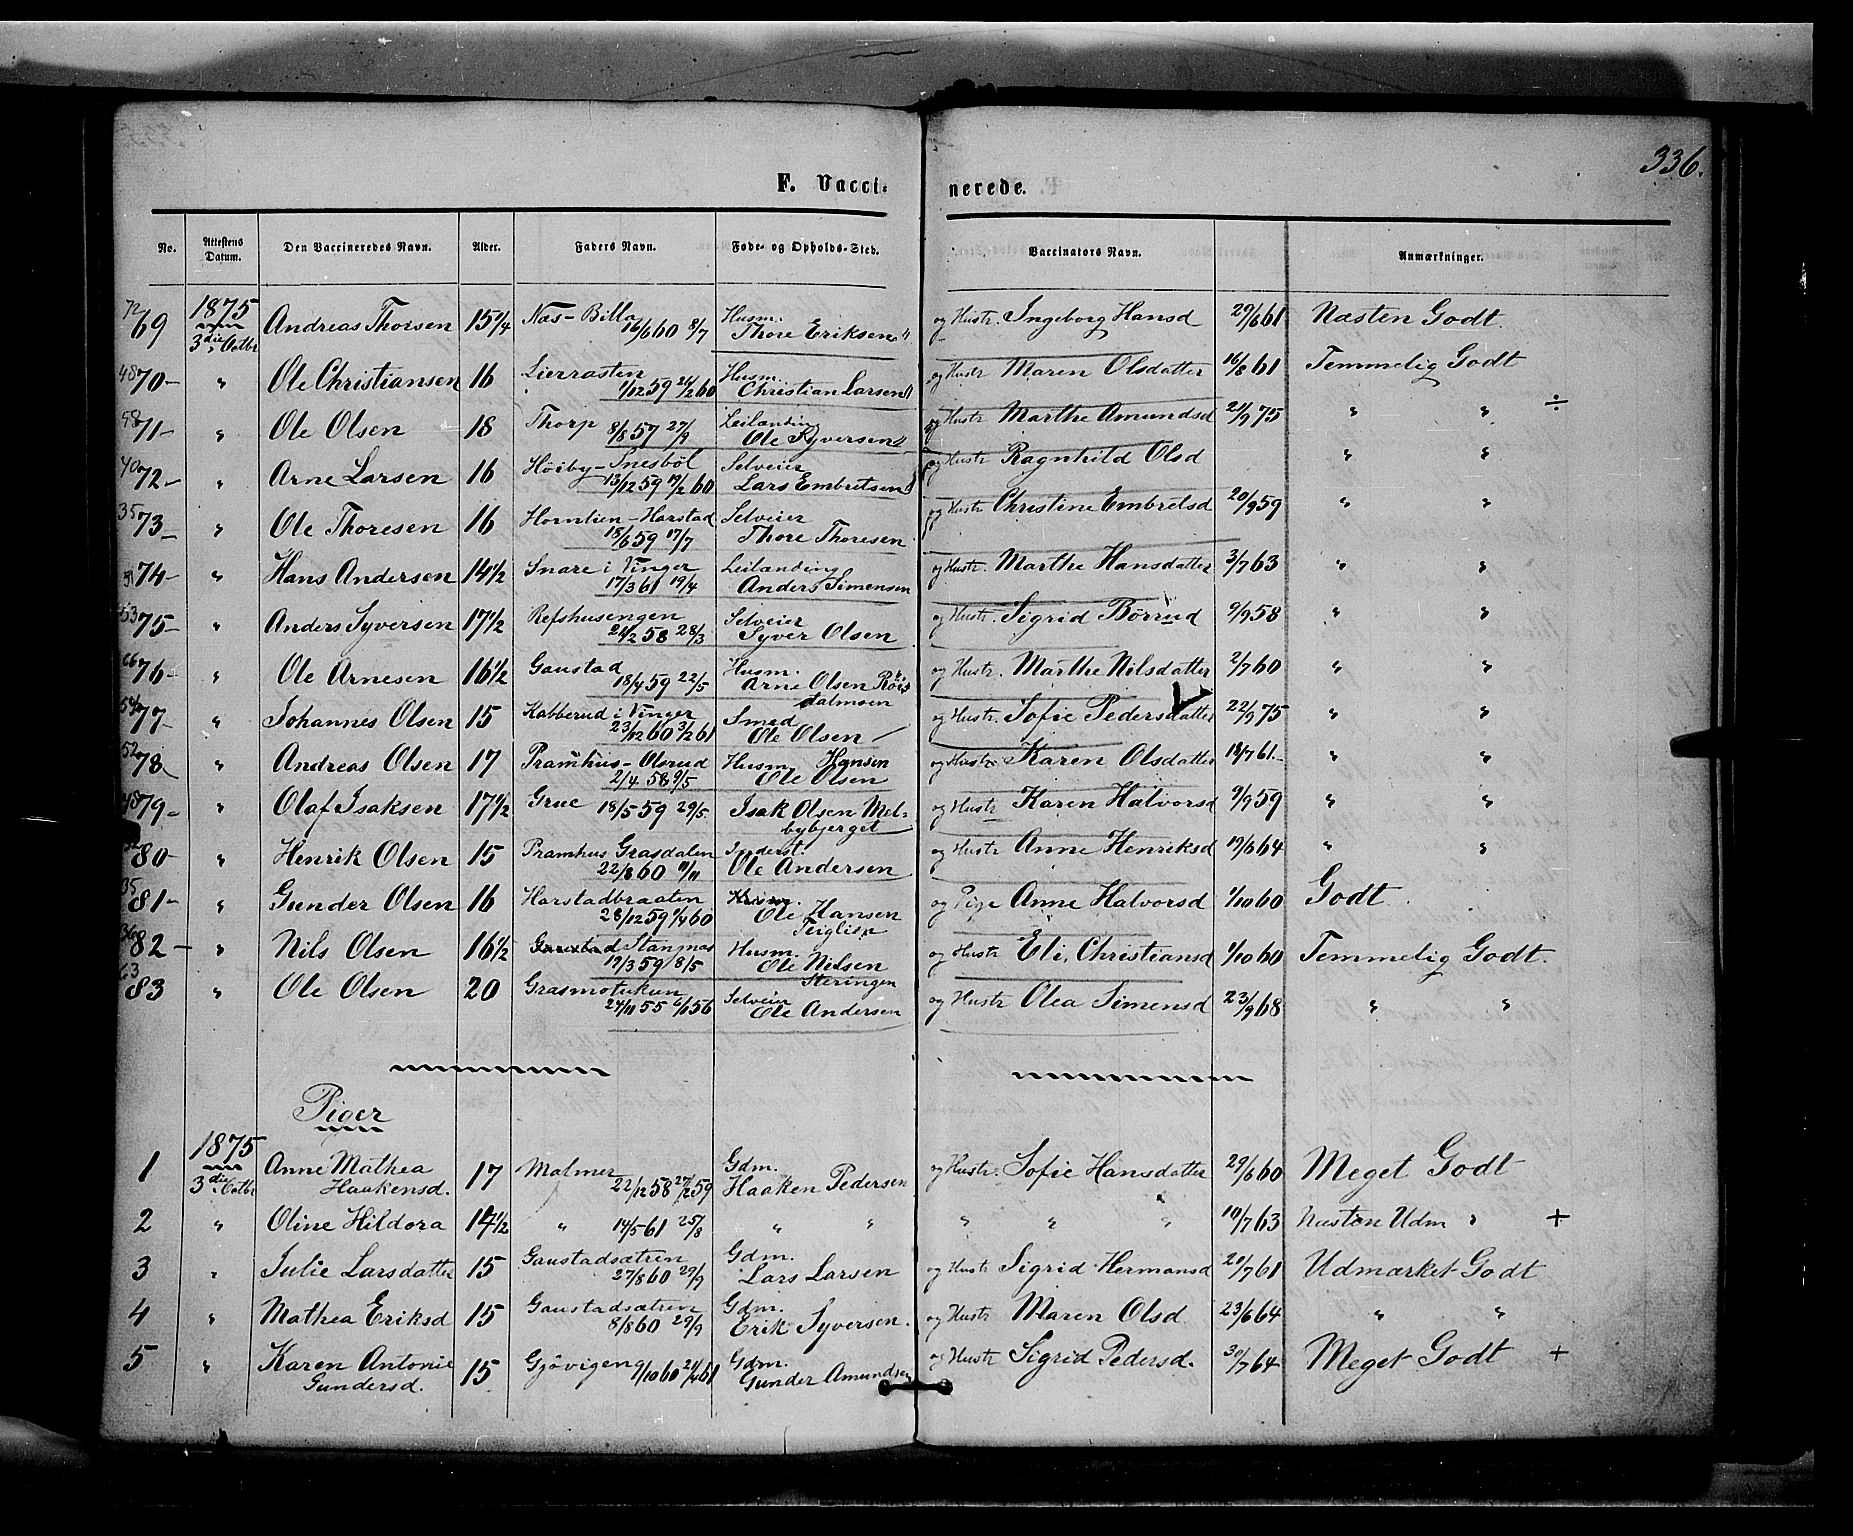 336.
F. Vacci- nerede.
No. Attestens Datum. Den Vaccineredes Navn. Alder. Faders Navn. Føde- og Opholds-Sted. Vaccinators Navn. Anmærkninger.
72 69 1875 3die Octbr Andreas Thorsen 15 1/4 Næs-Billa 16/6 60 8/7 Husm. Thore Eriksen og Hustr. Ingeborg Hansd 29/6 61 Næsten Godt.
48 70 - " Ole Christiansen 16 Lierrasten 1/12 59 26/2 60 Husm. Christian Larsen og Hustr Maren Olsdatter 16/8 61 Temmelig Godt
58 71 - " Ole Olsen 18 Thorp 8/8 57 27/9 Leilænding Ole Syversen og Hustr Marthe Amundsd 21/9 75 " " ÷
40 72 - " Arne Larsen 16 Høiby-Snesböl 13/12 59 19/2 60 Selveier Lars Embretsen og Hustr Ragnhild Olsd " "
35 73 - " Ole Thoresen 16 Hornlien-Harstad 18/6 59 17/7 Selveier Thore Thoresen og Hustr Christine Embretsd 20/9 59 " "
74 - " Hans Andersen 14 1/2 Snare i Vinger 17/3 61 19/4 Leilænding Anders Simensen og Hustr. Marthe Hansdatter 3/7 63 " "
53 75 - " Anders Syversen 17 1/2 Refshusengen 21/2 58 28/3 Selveier Syver Olsen og Hustr. Sigrid Børrud 9/9 58 " "
66 76 - " Ole Arnesen 16 1/2 Gaustad 18/4 59 22/5 Husm. Arne Olsen og Hustr. Marthe Nilsdatter 2/7 60 " "
77 - " Johannes Olsen 15 Kabberud i Vinger 23/12 60 3/2 61 Smed Ole Olsen og Hustr Sofie Pedersdatter 22/9 75 " "
52 78 " Andreas Olsen 17 Pramhus-Olsrud 2/4 58 9/5 Husm. Hansen Ole Olsen og Hustr Karen Olsdatter 18/7 61. " "
48 79 - " Olaf Isaksen 17 1/2 Grue 18/5 59 29/5. Isak Olsen Melbybjerget og Hustr Karen Halvorsd 9/9 59 " "
32 80 - " Henrik Olsen 15 Pramhus Grasdalen 22/8 60 11/11 Inderst. Ole Andersen og Hustr Anne Henriksd 19/6 64 " "
35 81 - " Gunder Olsen 16 Harstadbraaten 28/12 59 9/4 60 Husm. Ole Hansen Teiglien og Pige Anne Halvorsd 1/10 60 Godt.
36 82 - " Nils Olsen 16 1/2 Gaustad Stangnæs 19/3 59 8/5 Husm. Ole Nilsen Steringen og Hustr Eli Christiansd 1/10 60 Temmelig Godt.
63 83 " Ole Olsen 20 Grasmotukun 24/11 55 6/1 56 Selveier Ole Andersen og Hustr Olea Simensd 23/9 68 " "
Piger
1 1875 3die Octbr Anne Mathea Haakensd. 17 Malmer 22/12 58 27/2 59 Gdm. Haaken Pedersen og Hustr. Sofie Hansdatter 29/6 60 Meget Godt
2 " Oline Hildora 14 1/2 " 14/5 61 25/8 " " " " " 10/7 63 Næsten Udm " +
3 " Julie Larsdatter 15 Gaustadsætren 27/8 60 29/9 Gdm. Lars Larsen og Hustr Sigrid Hermansd 20/7 61 Udmærket Godt
4 " Mathea Eriksd 15 Gaustadsætren 8/8 60 29/9 Gdm. Erik Syversen. og Hustr Maren Olsd 23/6 64 " "
5 " Karen Antonie Gundersd. 15 Gjövigeng 1/10 60 21/4 61 Gdm. Gunder Amundsen og Hustr Sigrid Pedersd. 30/7 64 Meget Godt +